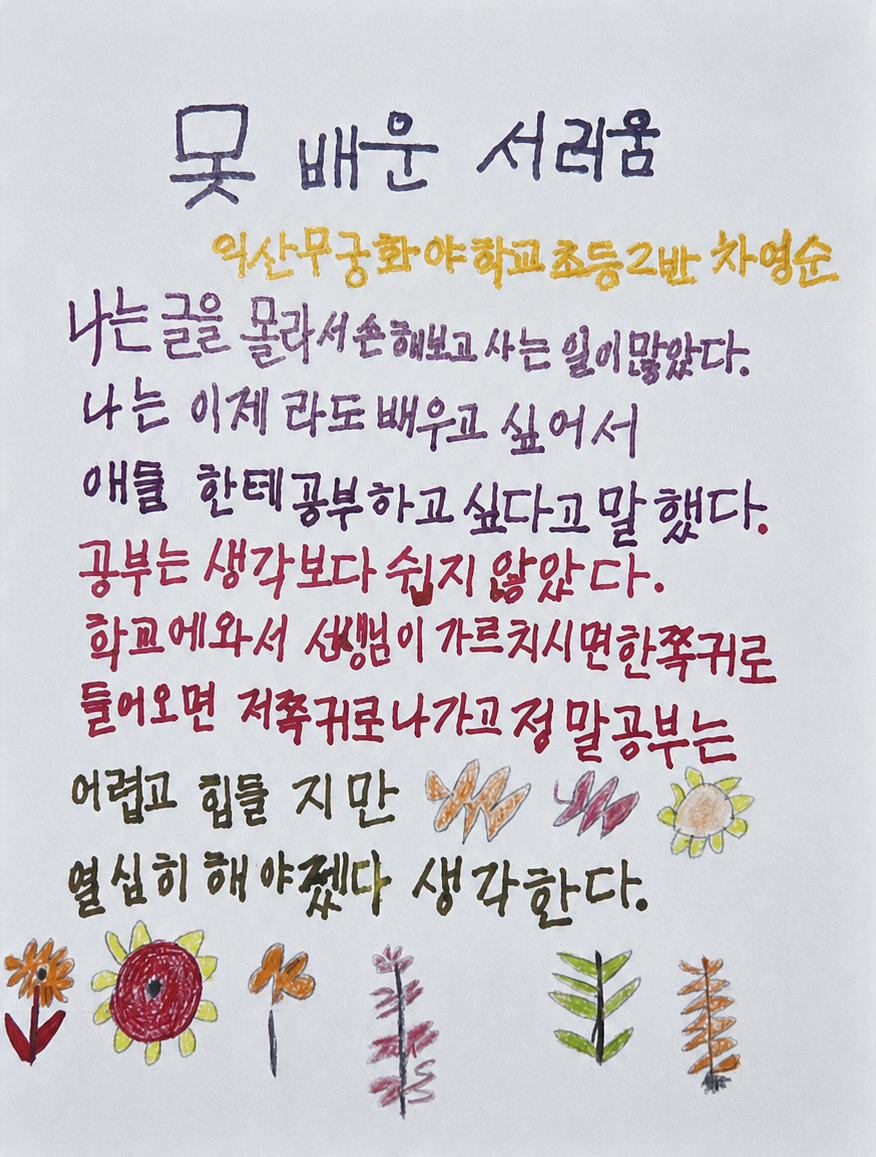 못 배운 서러움
익산무궁화야학교 초등2반 차영순
나는 글을 몰라서 손해보고 사는 일이 많았다.
나는 이제 라도 배우고 싶어서
애들 한테 공부하고 싶다고 말 했다.
공부는 생각보다 쉽지 않았다.
학교에와서 선생님이 가르치시면 한쪽귀로
들어오면 저쪽귀로 나가고 정말공부는
어렵고 힘들 지만
열심히 해야젰다 생각한다.